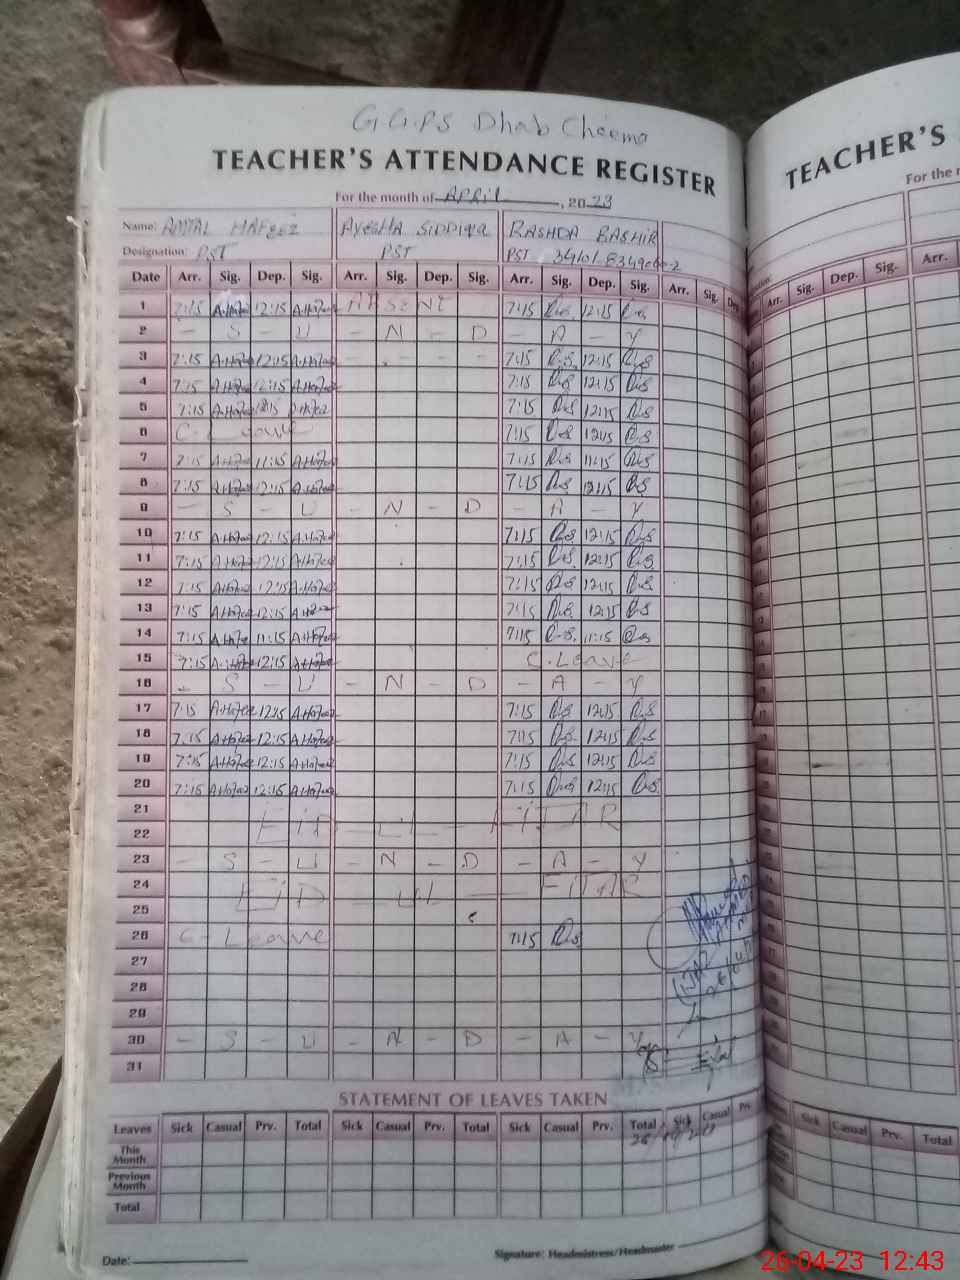 G.G.PS Dhab Cheema
TEACHER'S ATTENDANCE REGISTER
For the month of APRIL, 2023
Name: AMTAL HAFEEZ AYESHA SIDDIQA RASHDA BASHIR
Designation: PST PST PST
Date Arr. Sig. Dep. Sig. Arr. Sig. Dep. Sig. Arr. Sig. Dep. Sig. Arr. Sig. Dep
1 7:15 A.Hafeez 12:15 A.Hafeez ABSENT 7:15 R.S 12:15 R.S
2 - S - U - N - D - A - Y
3 7:15 A.Hafeez 12:15 A.Hafeez - - - - 7:15 R.S 12:15 R.S
4 7:15 A.Hafeez 12:15 A.Hafeez 7:15 R.S 12:15 R.S
5 7:15 A.Hafeez 12:15 A.Hafeez 7:15 R.S 12:15 R.S
6 C-Leave 7:15 R.S 12:15 R.S
7 7:15 A.Hafeez 11:15 A.Hafeez 7:15 R.S 11:15 R.S
8 7:15 A.Hafeez 12:15 A.Hafeez 7:15 R.S 12:15 R.S
9 - S - U - N - D - A - Y
10 7:15 A.Hafeez 12:15 A.Hafeez 7:15 R.S 12:15 R.S
11 7:15 A.Hafeez 12:15 A.Hafeez 7:15 R.S 12:15 R.S
12 7:15 A.Hafeez 12:15 A.Hafeez 7:15 R.S 12:15 R.S
13 7:15 A.Hafeez 12:15 A.Hafeez 7:15 R.S 12:15 R.S
14 7:15 A.Hafeez 11:15 A.Hafeez 7:15 R.S 11:15 R.S
15 7:15 A.Hafeez 12:15 A.Hafeez C.Leave
16 - S - U - N - D - A - Y
17 7:15 A.Hafeez 12:15 A.Hafeez 7:15 R.S 12:15 R.S
18 7:15 A.Hafeez 12:15 A.Hafeez 7:15 R.S 12:15 R.S
19 7:15 A.Hafeez 12:15 A.Hafeez 7:15 R.S 12:15 R.S
20 7:15 A.Hafeez 12:15 A.Hafeez 7:15 R.S 12:15 R.S
21 EID - UL - FITAR
22
23 - S - U - N - D - A - Y
24 EID - UL - FITAR
25
26 C-Leave 7:15 R.S
27
28
29
30 - S - U - N - D - A - Y
31
STATEMENT OF LEAVES TAKEN
Leaves Sick Casual Prv. Total Sick Casual Prv. Total Sick Casual Prv. Total Sick Casual Prv.
This Month
Previous Month
Total
Date: Signature: Headmistress/Headmaster
TEACHER'S
For the
Arr. Sig. Dep. Sig. Arr.
Sick Casual Prv. Total
26-04-23 12:43